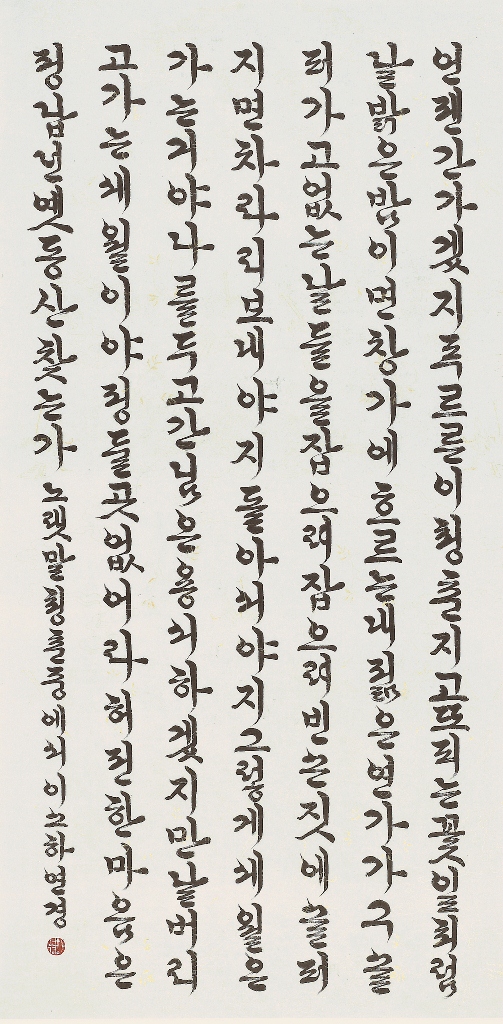 언젠간가겠지푸르른이청춘지고또피는꽃잎처럼
달밝은밤이면창가에흐르는내젊은연가가구슬
퍼가고없는날들을잡으려잡으려빈손짓에슬퍼
지면차라리보내야지돌아서야지그렇게세월은
가는거야나를두고간님은용서하겠지만날버리
고가는세월이야정둘곳없어라허전한마음은
정답던옛동산찾는가 노랫말청춘중에서이소하